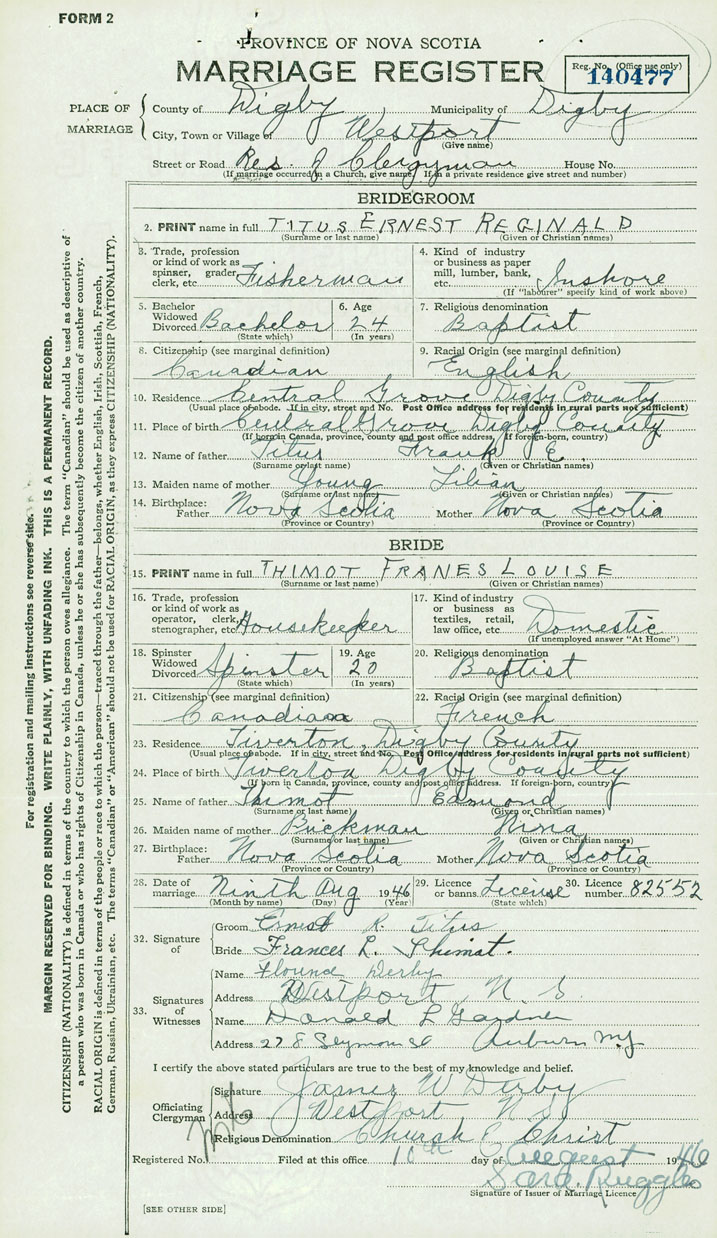 FORM 2
PROVINCE OF NOVA SCOTIA
MARRIAGE REGISTER
Reg. No. (Office use only)
140477
PLACE OF MARRIAGE
County of Digby Municipality of Digby
City, Town or Village of Westport
(Give name)
Street or Road Res. of Clergyman House No.
(If marriage occurred in a Church, give name. If in a private residence give street and number)
BRIDEGROOM
2. PRINT name in full TITUS ERNEST REGINALD
(Surname or last name) (Given or Christian names)
3. Trade, profession or kind of work as spinner, grader, clerk, etc. Fisherman
4. Kind of industry or business as paper mill, lumber, bank, etc. Inshore
(If "labourer" specify kind of work above)
5. Bachelor Widowed Divorced Bachelor
(State which)
6. Age 24
(In years)
7. Religious denomination
Baptist
8. Citizenship (see marginal definition)
Canadian
9. Racial Origin (see marginal definition)
English
10. Residence Central Grove Digby County
(Usual place of abode. If in city, street and No. Post Office address for residents in rural parts not sufficient)
11. Place of birth Central Grove Digby County
(If born in Canada, province, county and post office address. If foreign-born, country)
12. Name of father Titus Frank E.
(Surname or last name) (Given or Christian names)
13. Maiden name of mother Young Lilian
(Surname or last name) (Given or Christian names)
14. Birthplace: Father Nova Scotia Mother Nova Scotia
(Province or Country) (Province or Country)
BRIDE
15. PRINT name in full THIMOT FRANES LOUISE
(Surname or last name) (Given or Christian names)
16. Trade, profession or kind of work as operator, clerk, stenographer, etc. Housekeeper
17. Kind of industry or business as textiles, retail, law office, etc. Domestic
(If unemployed answer "At Home")
18. Spinster Widowed Divorced Spinster
(State which)
19. Age 20
(In years)
20. Religious denomination
Baptist
21. Citizenship (see marginal definition)
Canadian
22. Racial Origin (see marginal definition)
French
23. Residence Tiverton, Digby County
(Usual place of abode. If in city, street and No. Post Office address for residents in rural parts not sufficient)
24. Place of birth Tiverton Digby County
(If born in Canada, province, county and post office address. If foreign-born, country)
25. Name of father Thimot Edmond
(Surname or last name) (Given or Christian names)
26. Maiden name of mother Buckman Nina
(Surname or last name) (Given or Christian names)
27. Birthplace: Father Nova Scotia Mother Nova Scotia
(Province or Country) (Province or Country)
28. Date of marriage Ninth Aug 1946 29. Licence or banns License 30. Licence number 82552
(Month by name) (Day) (Year) (State which)
32. Signature of
Groom Ernest R. Titus
Bride Frances L. Thimot.
33. Signatures of Witnesses
Name Florence Derby
Address Westport N. S.
Name Donald L Gardner
Address 278 Seymour St Auburn N.Y.
I certify the above stated particulars are true to the best of my knowledge and belief.
Officiating Clergyman
Signature W Derby
Address Westport N S
Religious Denomination Church of Christ
Registered No. Filed at this office 10th day of August 1946
Sara Ruggles
Signature of Issuer of Marriage Licence
[SEE OTHER SIDE]
For registration and mailing instructions see reverse side.
MARGIN RESERVED FOR BINDING. WRITE PLAINLY, WITH UNFADING INK. THIS IS A PERMANENT RECORD.
CITIZENSHIP (NATIONALITY) is defined in terms of the country to which the person owes allegiance. The term "Canadian" should be used as descriptive of
a person who was born in Canada or who has rights of Citizenship in Canada, unless he or she has subsequently become the citizen of another country.
RACIAL ORIGIN is defined in terms of the people or race to which the person—traced through the father—belongs, whether English, Irish, Scottish, French,
German, Russian, Ukrainian, etc. The terms "Canadian" or "American" should not be used for RACIAL ORIGIN, as they express CITIZENSHIP (NATIONALITY).